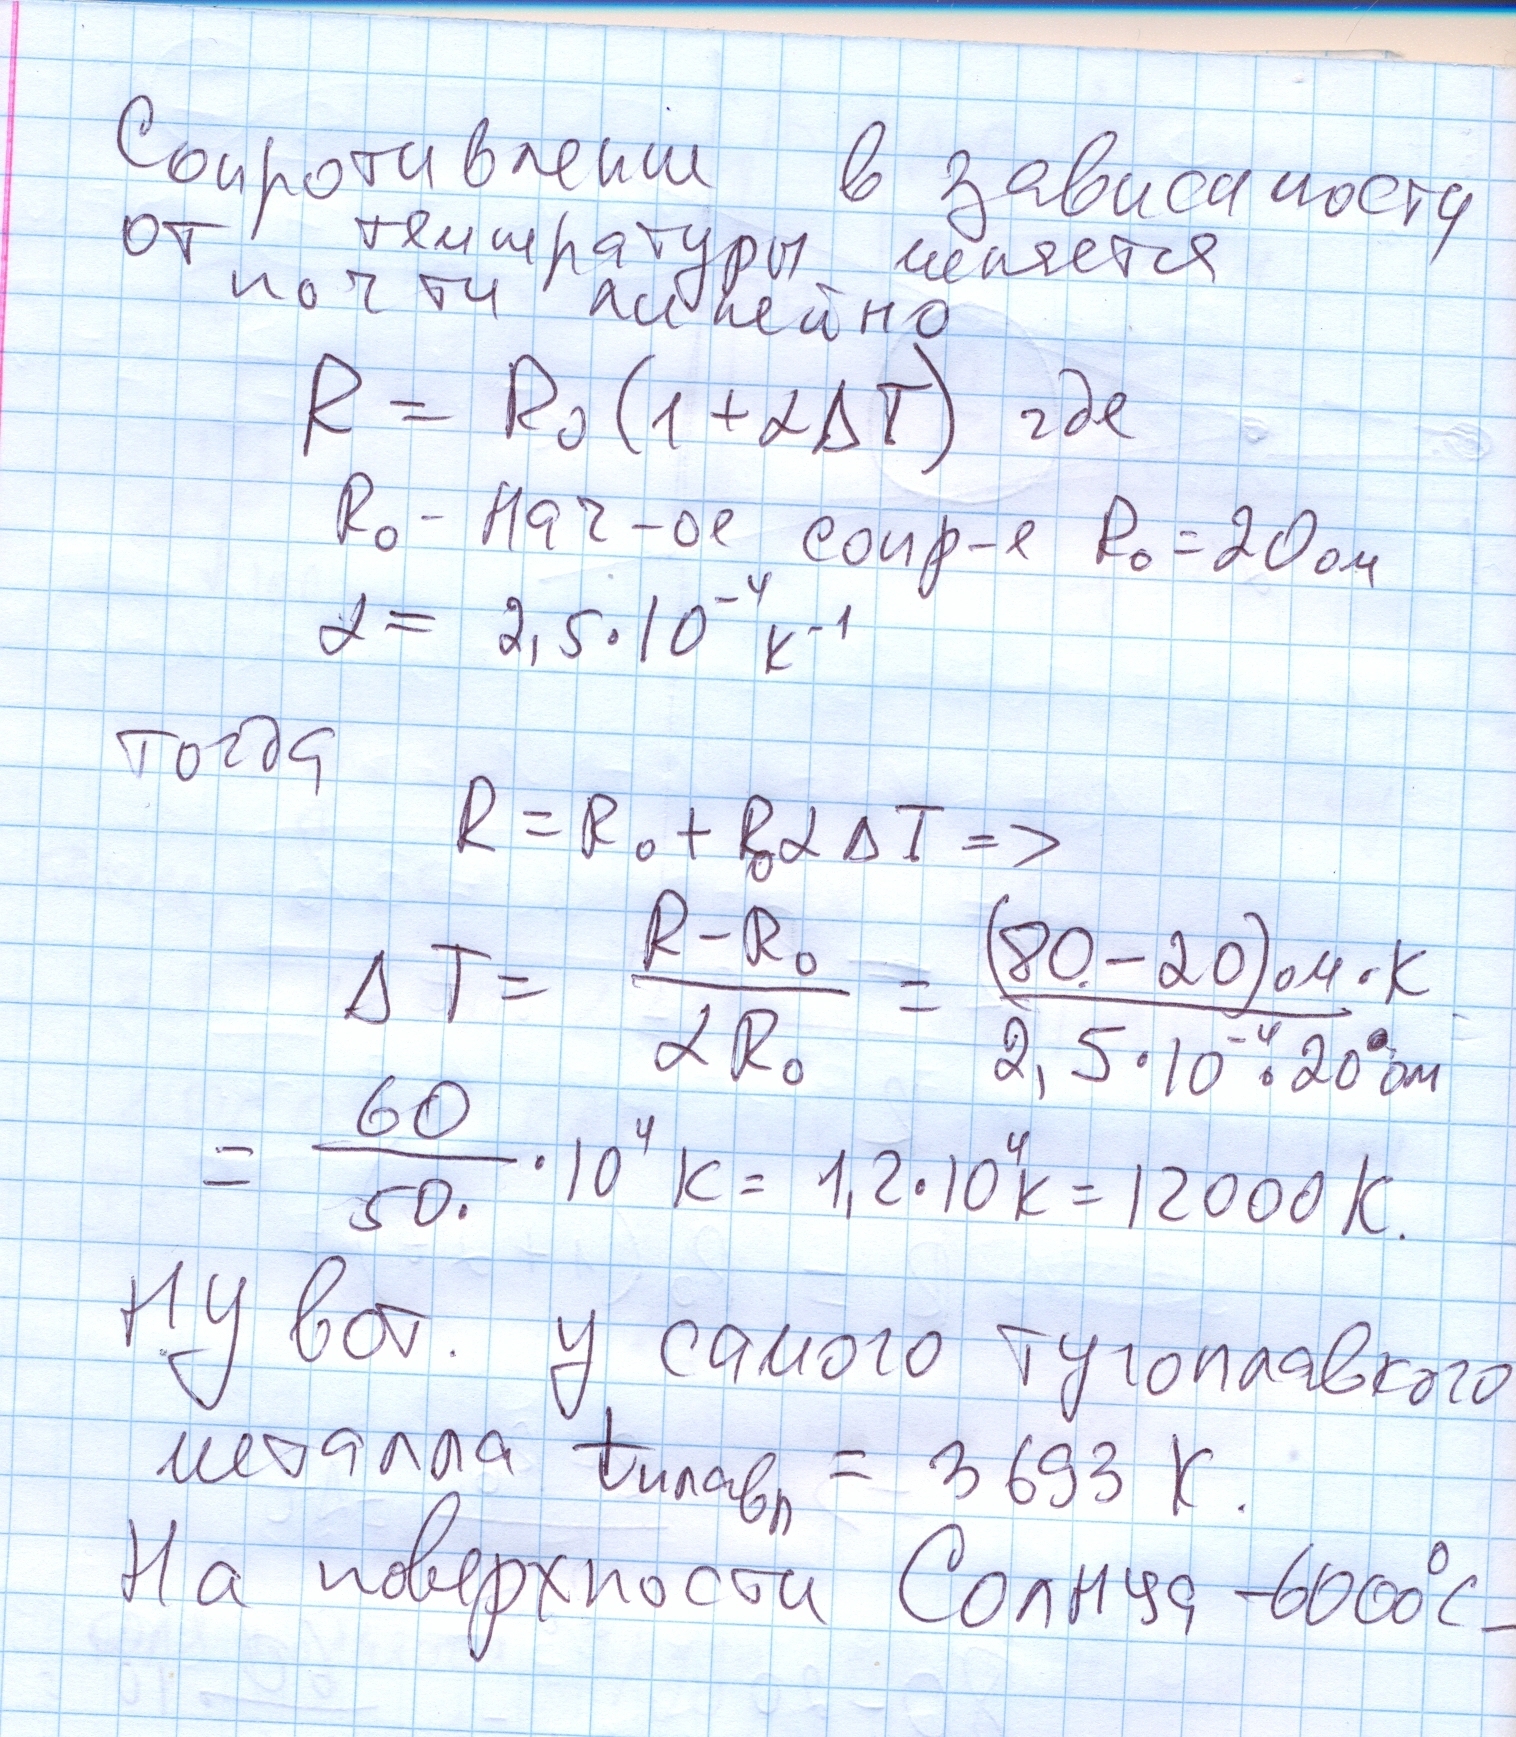 Сопротивление в зависимости
от температуры меняется
почти линейно
R = R₀(1+αΔT) где
R₀ - нач-ое сопр-е R₀ = 20 ом
α = 2,5·10⁻⁴ К⁻¹
тогда
R = R₀ + R₀αΔT =>
ΔT = (R-R₀)/(αR₀) = ((80-20) ом·К)/(2,5·10⁻⁴·20 ом)
= 60/50 · 10⁴ К = 1,2·10⁴ К = 12000 К.
Ну вот. у самого тугоплавкого
металла tплавл = 3693 К.
На поверхности Солнца - 6000°С